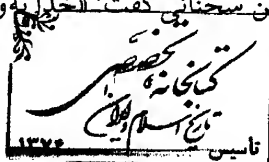 ن سبحانی گفت: «خلیل
کتابخانه تخصصی
تاریخ اسلام و ایران
تأسیس ۱۳۷۶